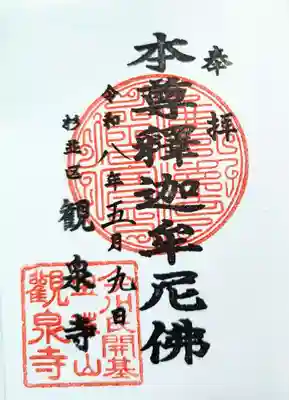 奉拝
本尊釋迦牟尼佛
令和八年五月九日
杉並区
観泉寺
今川氏開基
觀泉寺